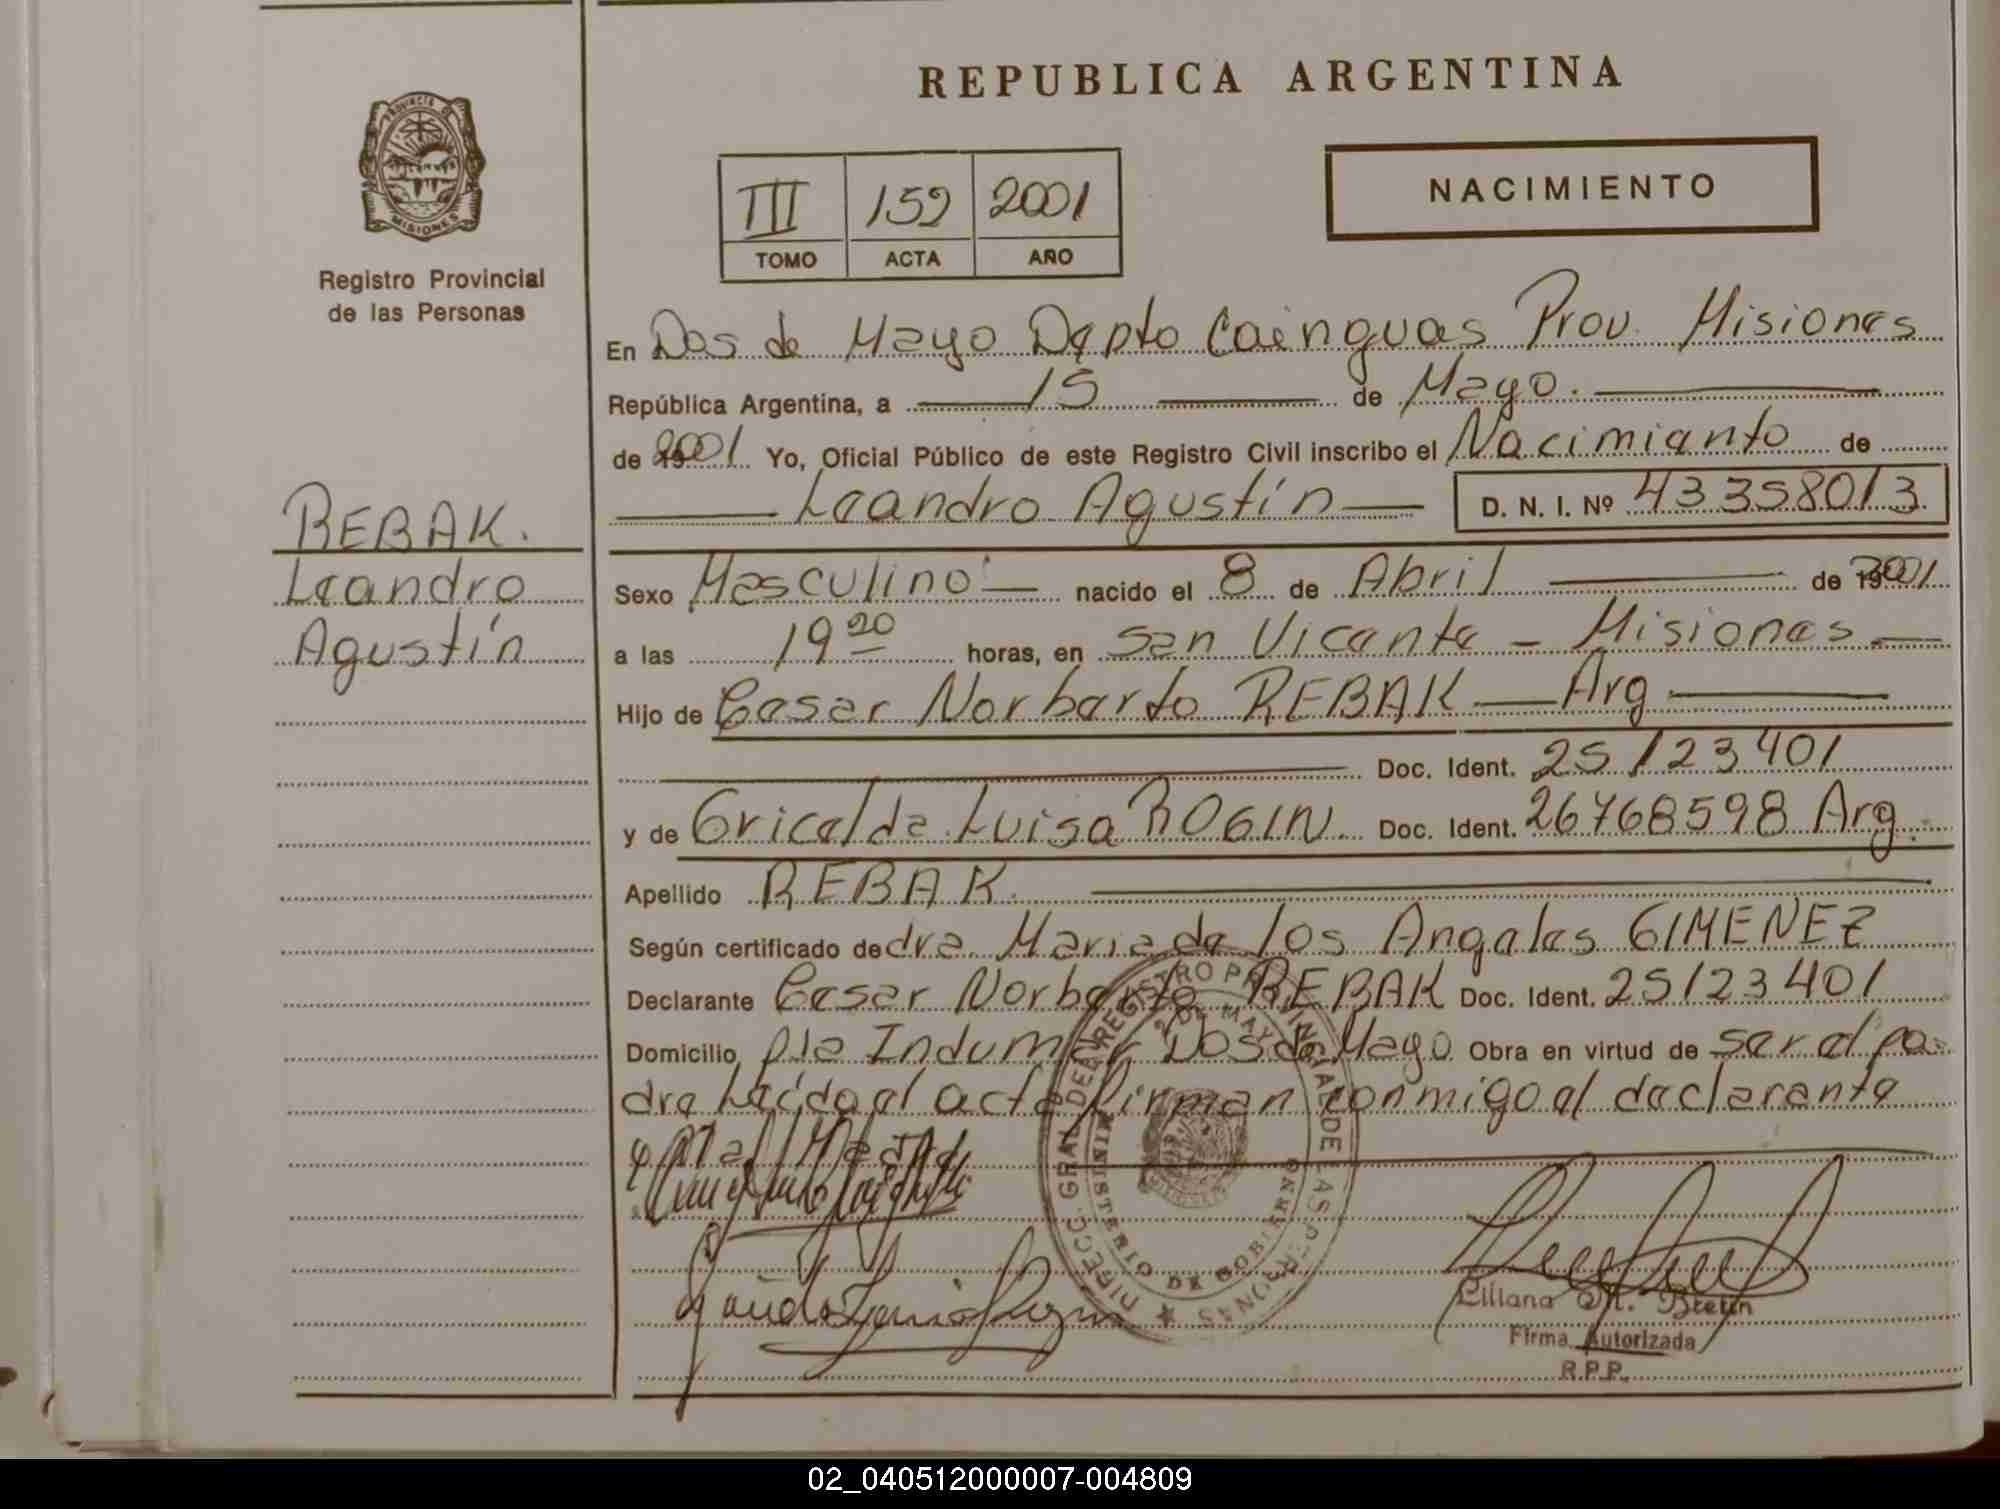 REPUBLICA ARGENTINA
PROVINCIA DE
MISIONES
Registro Provincial
de las Personas
III 152 2001
TOMO ACTA AÑO
NACIMIENTO
En Dos de Mayo Depto Cainguas Prov. Misiones
República Argentina, a 15 de Mayo.
de 2001 Yo, Oficial Público de este Registro Civil inscribo el Nacimiento de
Leandro Agustín D. N. I. Nº 43358013
REBAK.
Leandro
Agustín
Sexo Masculino nacido el 8 de Abril de 2001
a las 19 20 horas, en San Vicente - Misiones
Hijo de Cesar Norberto REBAK Arg
Doc. Ident. 25123401
y de Gricelda Luisa ROGIN Doc. Ident. 26768598 Arg.
Apellido REBAK.
Según certificado de dra. Maria de los Angeles GIMENEZ
Declarante Cesar Norberto REBAK Doc. Ident. 25123401
Domicilio Dos de Mayo Obra en virtud de ser el pa-
dre Leída el acta firman conmigo el declarante
y
DIRECC. GRAL. DEL REGISTRO PROVINCIAL DE LAS PERSONAS
2 DE MAYO
MINISTERIO DE GOBIERNO
Liliana M.
Firma Autorizada
R.P.P.
02_040512000007-004809